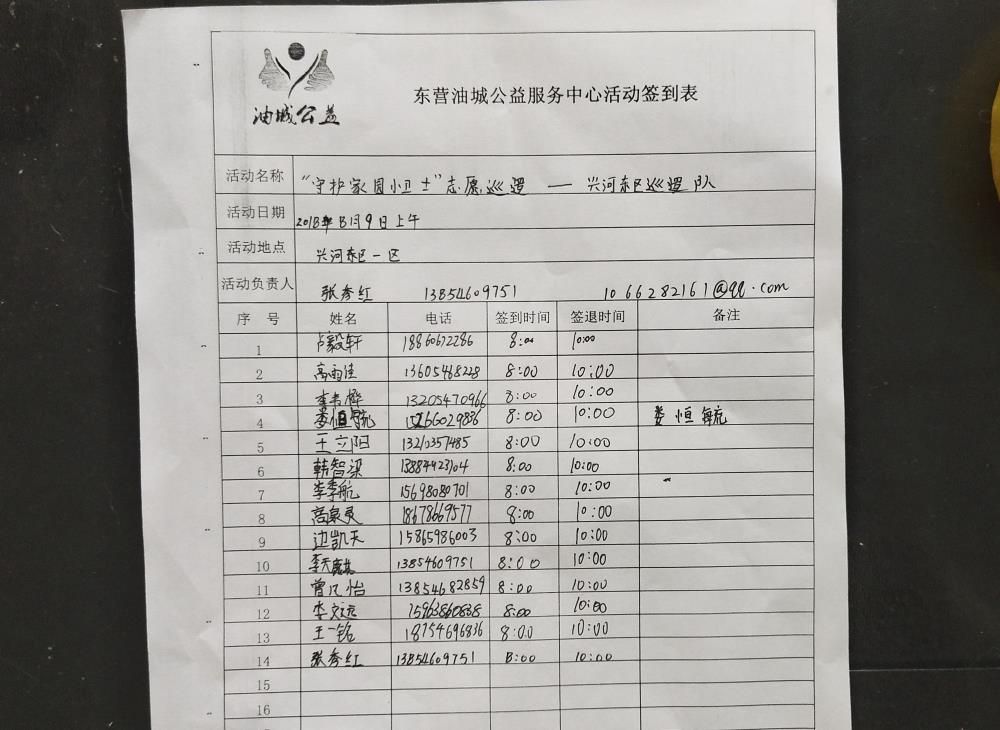 油城公益
东营油城公益服务中心活动签到表
活动名称 “守护家园小卫士”志愿巡逻 — 兴河东区巡逻队
活动日期 2018年8月9日上午
活动地点 兴河东区一区
活动负责人 张秀红 13854609751 1066282161@qq.com
序 号 姓名 电话 签到时间 签退时间 备注
1 卢毅轩 18860672286 8:00 10:00
2 高雨佳 13605468228 8:00 10:00
3 李书桦 13205470966 8:00 10:00
4 娄恒毓 15266029836 8:00 10:00 娄恒毓
5 王立阳 13210357485 8:00 10:00
6 韩智梁 13884923104 8:00 10:00
7 李季航 15698080701 8:00 10:00
8 高泉灵 18678669577 8:00 10:00
9 边凯天 15865986003 8:00 10:00
10 李天麒 13854609751 8:00 10:00
11 曾凡怡 13854682859 8:00 10:00
12 李文远 15963860838 8:00 10:00
13 王一铭 18754696836 8:00 10:00
14 张秀红 13854609751 8:00 10:00
15
16